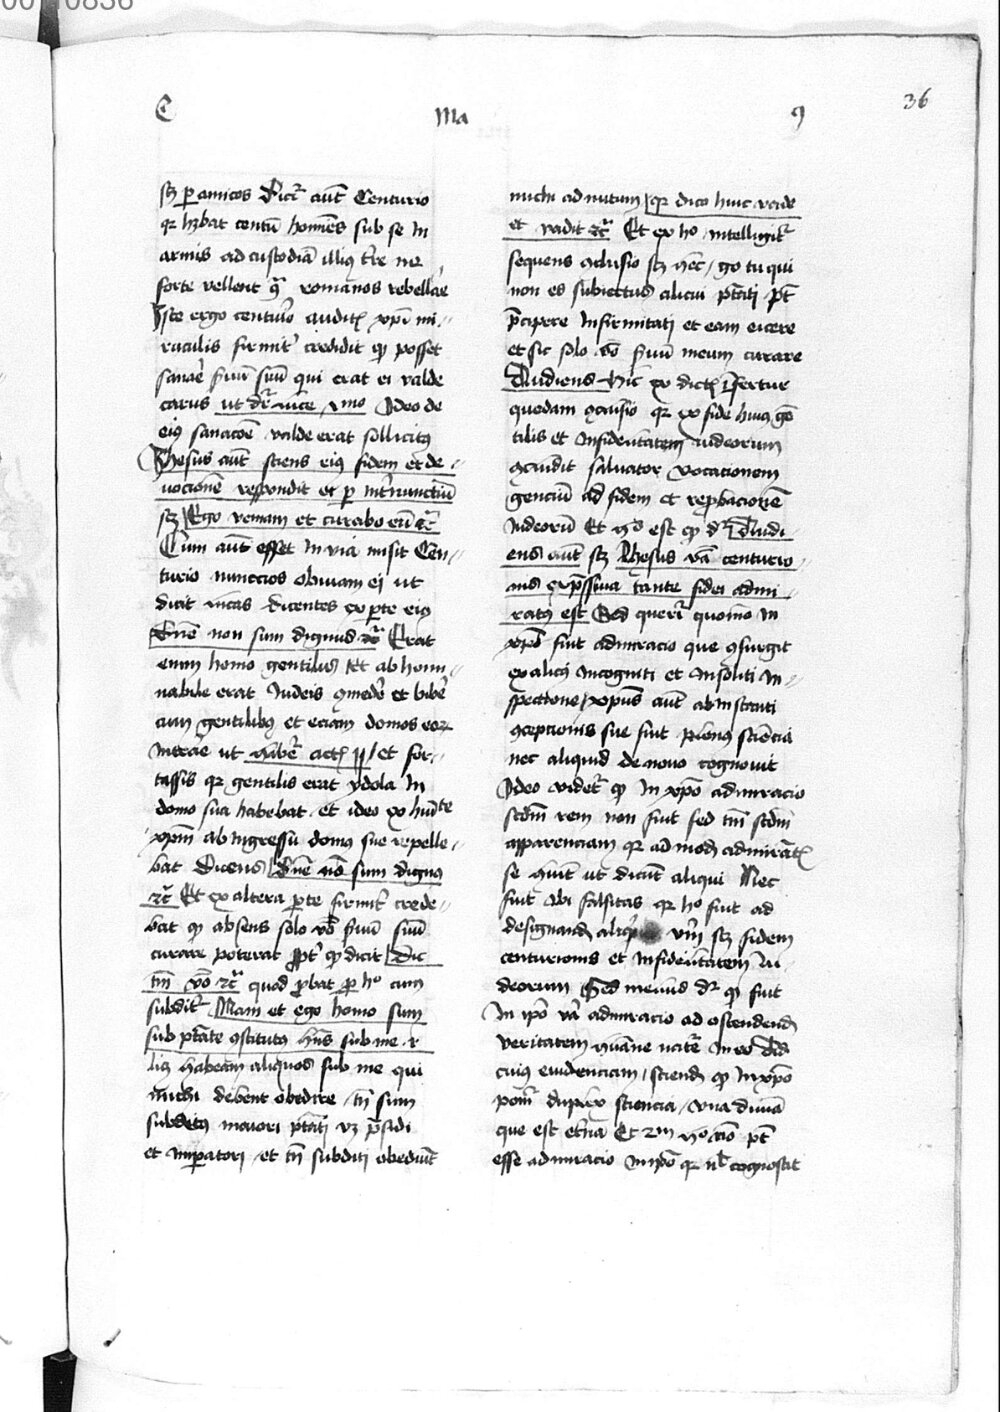 C Ma 9 36
scz per amicos Dicitur autem Centurio
qr habebat centum homines sub se In
armis ad custodiam illius terre ne
forte vellent contra romanos rebellare
Iste ergo centurio auditis xpi mi-
raculis firmiter credidit quod posset
sanare seruum suum qui erat ei valde
carus ut dicitur luce Ideo de
eius sanacione valde erat sollicitus
Ihesus autem sciens eius fidem et de-
uocionem respondit ei per internunctium
scz Ego veniam et curabo eum etc
Cum autem esset In via misit Cen-
turio nunccios obuiam ei ut
dicit lucas dicentes ex parte eius
Domine non sum dignus etc Erat
enim homo gentilis et abhomi-
nabile erat Iudeis comedere et bibere
cum gentilibus et eciam domos eorum
Intrare ut habetur et for-
tassis quia gentilis erat ydola In
domo sua habebat et ideo
xpm ab Ingressu domus sue repelle-
bat dicens Domine non sum dignus
etc Et ex altera parte firmiter crede-
bat quod absens solo verbo seruum suum
curare poterat propter quod dicit Dic
tantum verbo etc quod probat per hoc cum
subditur Nam et ego homo sum
sub potestate constitutus habens sub me
habeam aliquos sub me qui
michi debent obedire tamen sum
subditus maiori potestati presidi
et Imperatori et tamen subditi obediunt
michi ad nutum quia dico huic vade
et vadit etc Et ex hoc Intelligitur
sequens conclusio scz hec ergo tu qui
non es subiectus alicui potestati potes
precipere Infirmitati et eam eicere
et sic solo verbo seruum meum curare
Audiens Hic ex dictis infertur
quedam conclusio quia ex fide huius gen
tilis et Infidelitatem Iudeorum
concludit saluator vocationem
gencium ad fidem et reprobacionem
Iudeorum Et hoc est quod dicitur Audi-
ens autem scz Ihesus verba centurio-
nis expressiua tante fidei admi-
ratus est Sed queritur quomodo In
xpo fuit admiracio que consurgit
ex alicuius Incogniti et Insoliti In-
spectione xpus autem ab instanti
conceptionis sue fuit plenus sciencia
nec aliquid de nouo cognouit
Ideo videtur quod In xpo admiracio
secundum rem non fuit sed tantum secundum
apparenciam quia ad modum admirantis
se habuit ut dicunt aliqui Nec
fuit ibi falsitas quia hoc fuit ad
designandum scz fidem
centurionis et Infidelitatem Iu-
deorum Sed melius dicitur quod fuit
In ipso vera admiracio ad ostendendam
veritatem humane nature In eo Ad
cuius euidenciam sciendum quod In xpo
ponitur duplex sciencia vna diuina
que est eterna Et non potest
esse admiracio quia nichil cognoscit